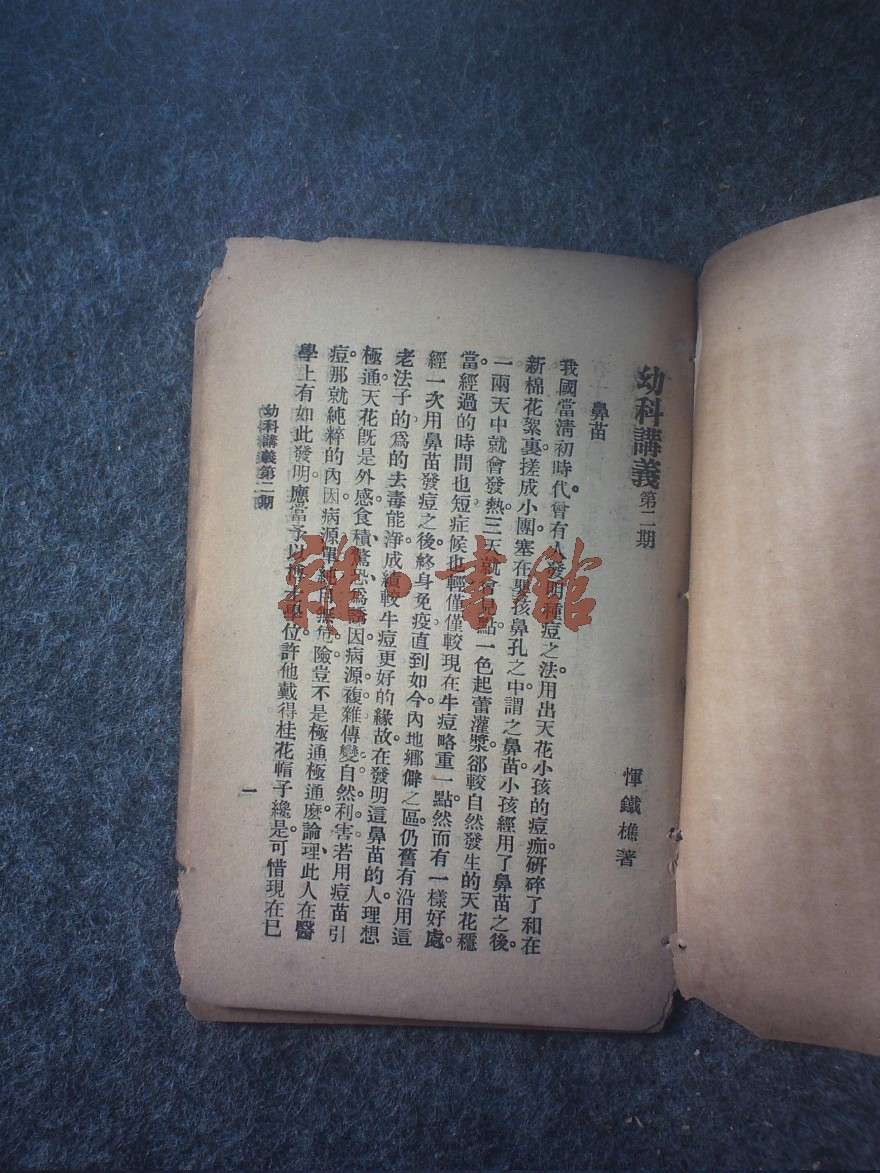 幼科講義 第二期
惲鐵樵著
鼻苗
我國當淸初時代。曾有人發明種痘之法。用出天花小孩的痘痂。研碎了和在
新棉花絮裏。搓成小團塞在嬰孩鼻孔之中。謂之鼻苗。小孩經用了鼻苗之後。
一兩天中就會發熱。三天就會見點。一色起蕾灌漿。卻較自然發生的天花穩
當。經過的時間也短。症候也輕。僅僅較現在牛痘略重一點。然而有一樣好處。
經一次用鼻苗發痘之後。終身免疫。直到如今。內地鄉僻之區。仍舊有沿用這
老法子的。爲的去毒能淨。成績較牛痘更好的緣故。在發明這鼻苗的人。理想
極通。天花旣是外感、食積、驚恐、爲誘因。病源複雜。傳變自然利害。若用痘苗引
痘。那就純粹的內因。病源單純。無危險。豈不是極通極通麽論理、此人在醫
學上有如此發明。應當予以學位。許他戴得桂花帽子纔是。可惜現在已
幼科講義第二期
一
雜·書館